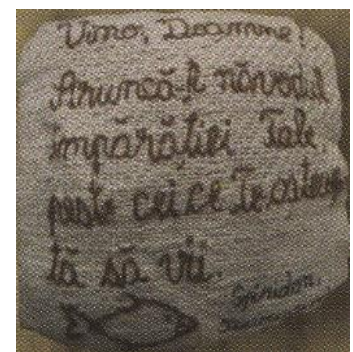 Vino, Doamne!
Aruncă-ți năvodul
împărăției Tale
peste cei ce Te aşteap
tă să vii.
Spiridon